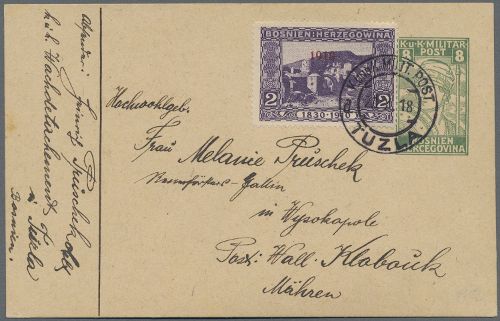 Absender:
Heinrich Prüschek
k.u.k. Wachdetachement
in Tuzla
Bosnien.
BOSNIEN-HERZEGOWINA
1918
2 2
1830-1
K.u.K. MILITÄR
POST
8 8
BOSNIEN
HERCEGOVINA
K.u.K. MILIT. POST
18
TUZLA
Hochwohlgeb.
Frau Melanie Prüschek
Gattin
in Wysokopole
Post: Wall. Klobouk
Mähren